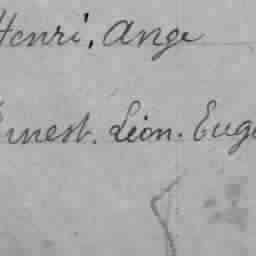 Henri, Ange
Ernest. Léon. Eug